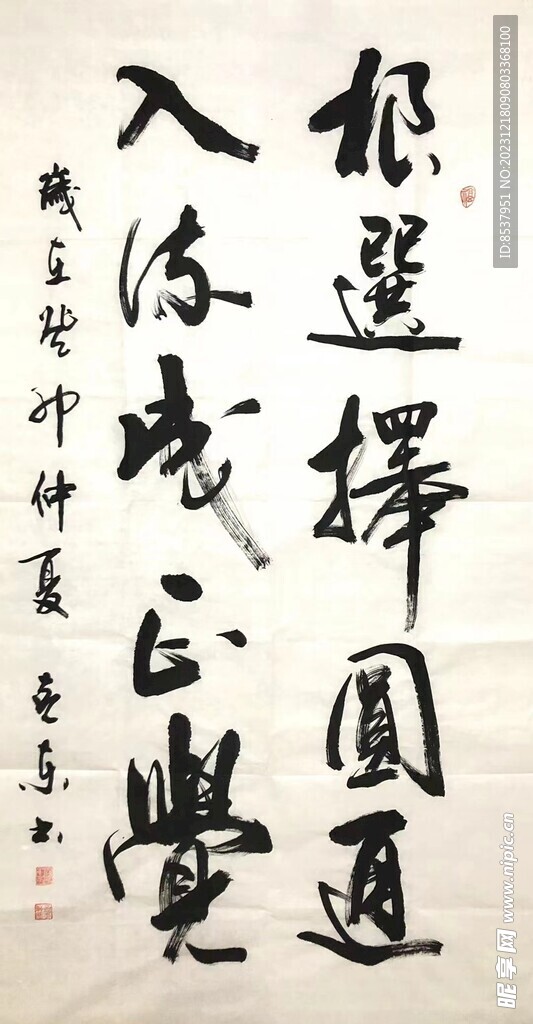 根選擇圓通
入流成正覺
歲在癸卯仲夏
書
ID:8537951 NO:20231218090803368100
昵享网 www.nipic.cn